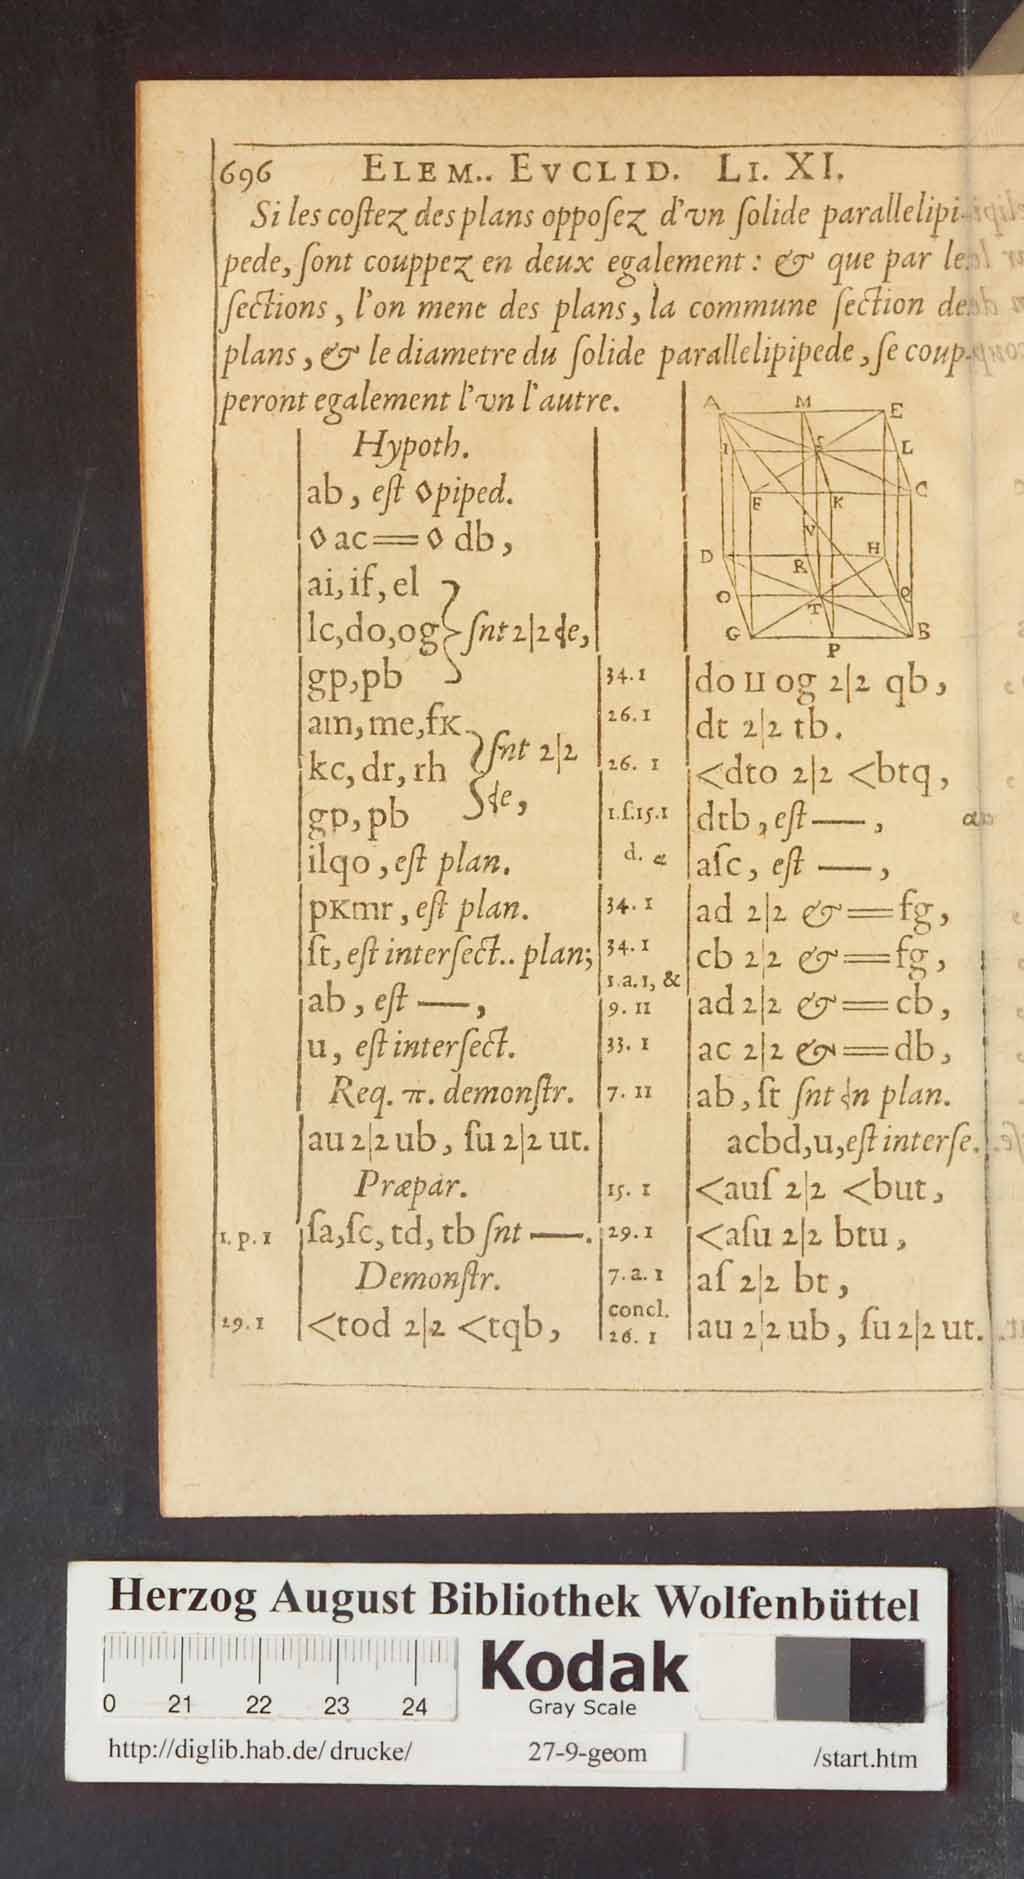 696 ELEM.. EVCLID. LI. XI.
Si les coſtez des plans oppoſez d'vn ſolide parallelipi-
pede, ſont couppez en deux egalement: & que par le
ſections, l'on mene des plans, la commune ſection de
plans, & le diametre du ſolide parallelipipede, ſe coup-
peront egalement l'vn l'autre.
Hypoth.
ab, eſt ◊piped.
◊ ac == ◊ db,
ai, if, el
lc, do, og } ſnt 2|2 de,
gp, pb
am, me, fK
kc, dr, rh } ſnt 2|2
gp, pb de,
ilqo, eſt plan.
pKmr, eſt plan.
ſt, eſt interſect.. plan;
ab, eſt —,
u, eſt interſect.
Req. π. demonſtr.
au 2|2 ub, ſu 2|2 ut.
Præpar.
1. p. 1 ſa, ſc, td, tb ſnt —.
Demonſtr.
29. 1 <tod 2|2 <tqb,
A M E
I S L
F K C
V
D R H
O T Q
G P B
34. 1 do II og 2|2 qb,
26. 1 dt 2|2 tb.
26. 1 <dto 2|2 <btq,
1.ſ.15.1 dtb, eſt —,
d. α aſc, eſt —,
34. 1 ad 2|2 & == fg,
34. 1 cb 2|2 & == fg,
1.a.1, &
9. 11 ad 2|2 & == cb,
33. 1 ac 2|2 & == db,
7. 11 ab, ſt ſnt in plan.
acbd, u, eſt interſe.
15. 1 <auſ 2|2 <but,
29. 1 <aſu 2|2 btu,
7. a. 1 aſ 2|2 bt,
concl.
26. 1 au 2|2 ub, ſu 2|2 ut.
Herzog August Bibliothek Wolfenbüttel
0 21 22 23 24
Kodak
Gray Scale
http://diglib.hab.de/drucke/ 27-9-geom /start.htm